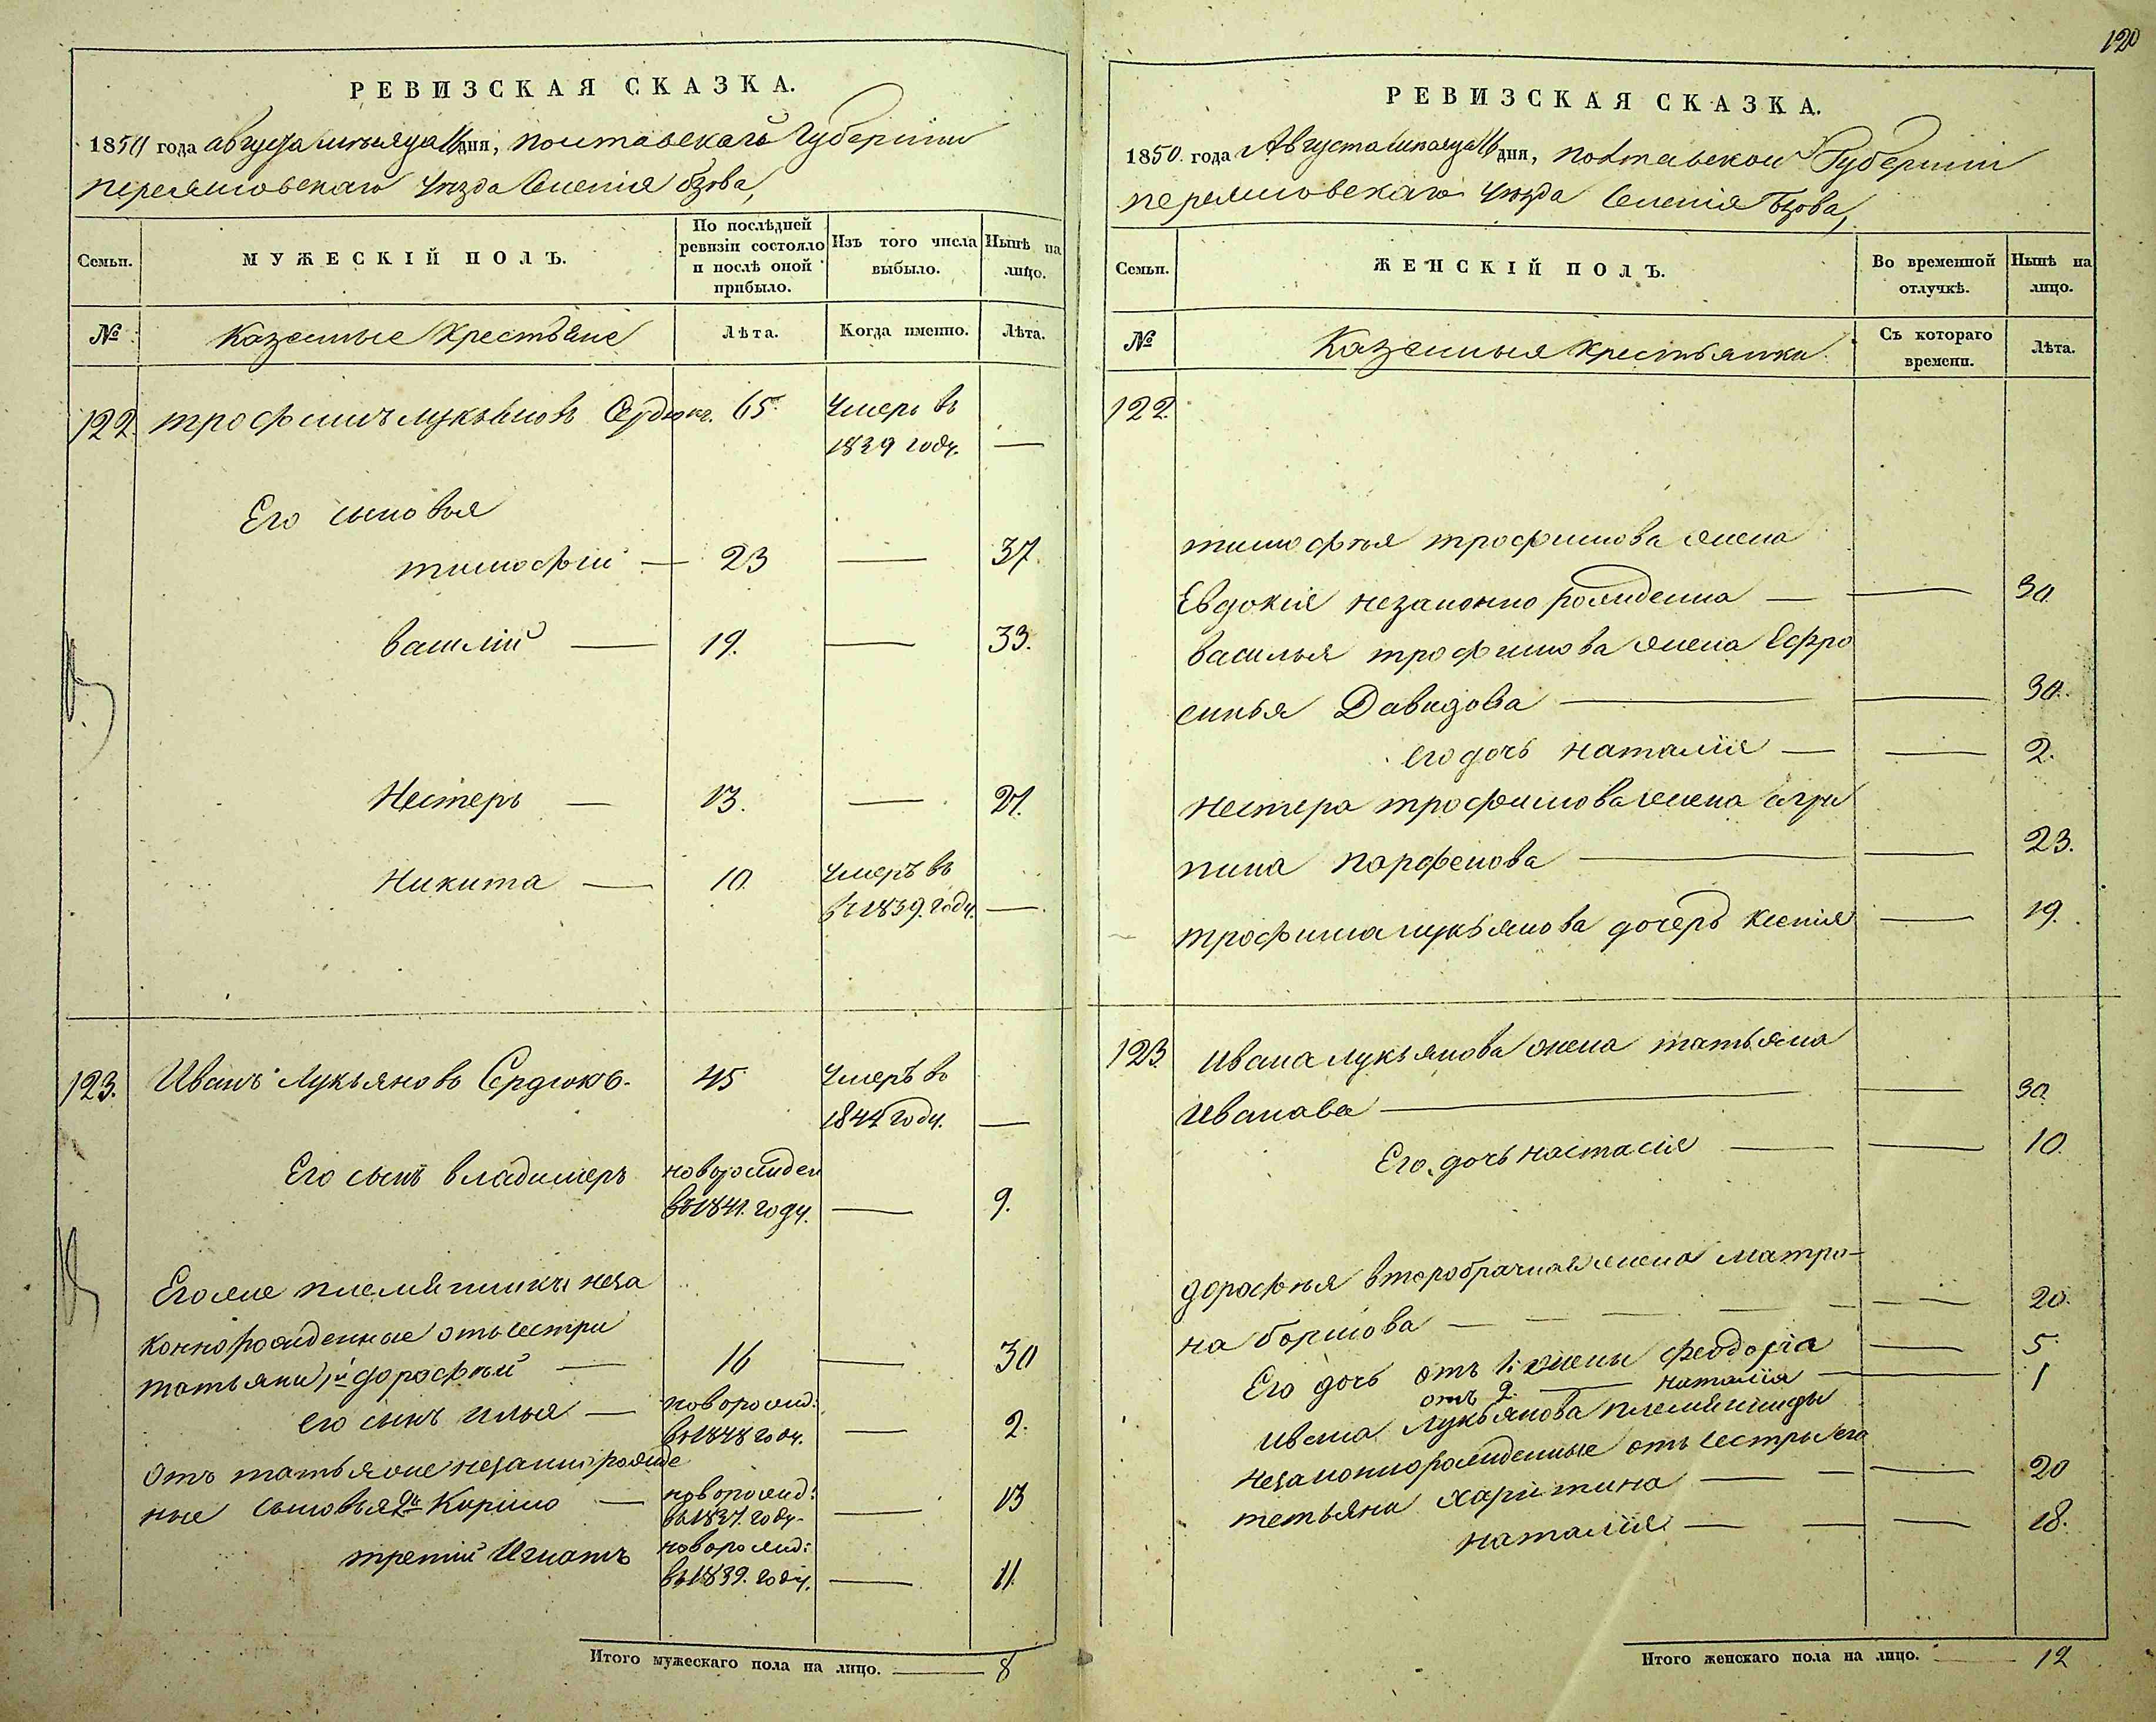 120
РЕВИЗСКАЯ СКАЗКА.
1850 года августа месяца 16 дня, полтавской Губернии
переяславскаго уезда Селения
МУЖЕСКІЙ ПОЛЪ.
Семьи.
По послѣдней ревизіи состояло и послѣ оной прибыло.
Изъ того числа выбыло.
Нынѣ на лицо.
№
Казенные крестьяне
Лѣта.
Когда именно.
Лѣта.
122. трофимъ лукьяновъ Сердюкъ. 65. Умеръ въ
1839 году. —
Его сыновья
тимофій — 23 — 37.
василій — 19. — 33.
Нестеръ — 13. — 27.
Никита — 10. Умеръ въ
въ 1839. году. —
123. Иванъ Лукьяновъ Сердюкъ. 45 Умеръ въ
1844 году. —
Его сынъ владимеръ новорожден
въ 1841. году. — 9.
Его же племянники неза
коннорожденные отъ сестри
татьяни, 1й дорофей — 16 — 30
его сынъ илья — новорожд:
въ 1848 году. — 2.
Отъ татьяны незаконнорожде
ные сыновья 2й Кирило — новорожд:
въ 1837. году. — 13
третій Игнатъ новорожд:
въ 1839. году. — 11.
Итого мужескаго пола на лицо. — 8
РЕВИЗСКАЯ СКАЗКА.
1850. года Августа месяца 16 дня, полтавской Губерніи
переяславскаго уезда Селенія
Семьи.
ЖЕНСКІЙ ПОЛЪ.
Во временной отлучкѣ.
Нынѣ на лицо.
№
Казенныя крестьянки.
Съ котораго времени.
Лѣта.
122.
тимофея трофимова жена
Евдокія незаконно рожденна — — 30
василья трофимова жена Ефро
синья Давидова — — 30.
его дочь наталія — — 2.
нестера трофимова жена агри
пина парфенова — — 23.
трофима лукьянова дочеръ ксенія — 19.
123 ивана лукьянова жена татьяна
иванова — — 30.
Его дочь настасія — — 10.
дорофея второбрачная жена матро-
на — — — — — 20.
Его дочь отъ 1: жены феодосія — 5
отъ 2. — наталія — 1
ивана лукьянова племянницы
незаконнорожденные отъ сестры его
тетьяна харитина — — — 20
наталія — — — 18.
Итого женскаго пола на лицо. — 12